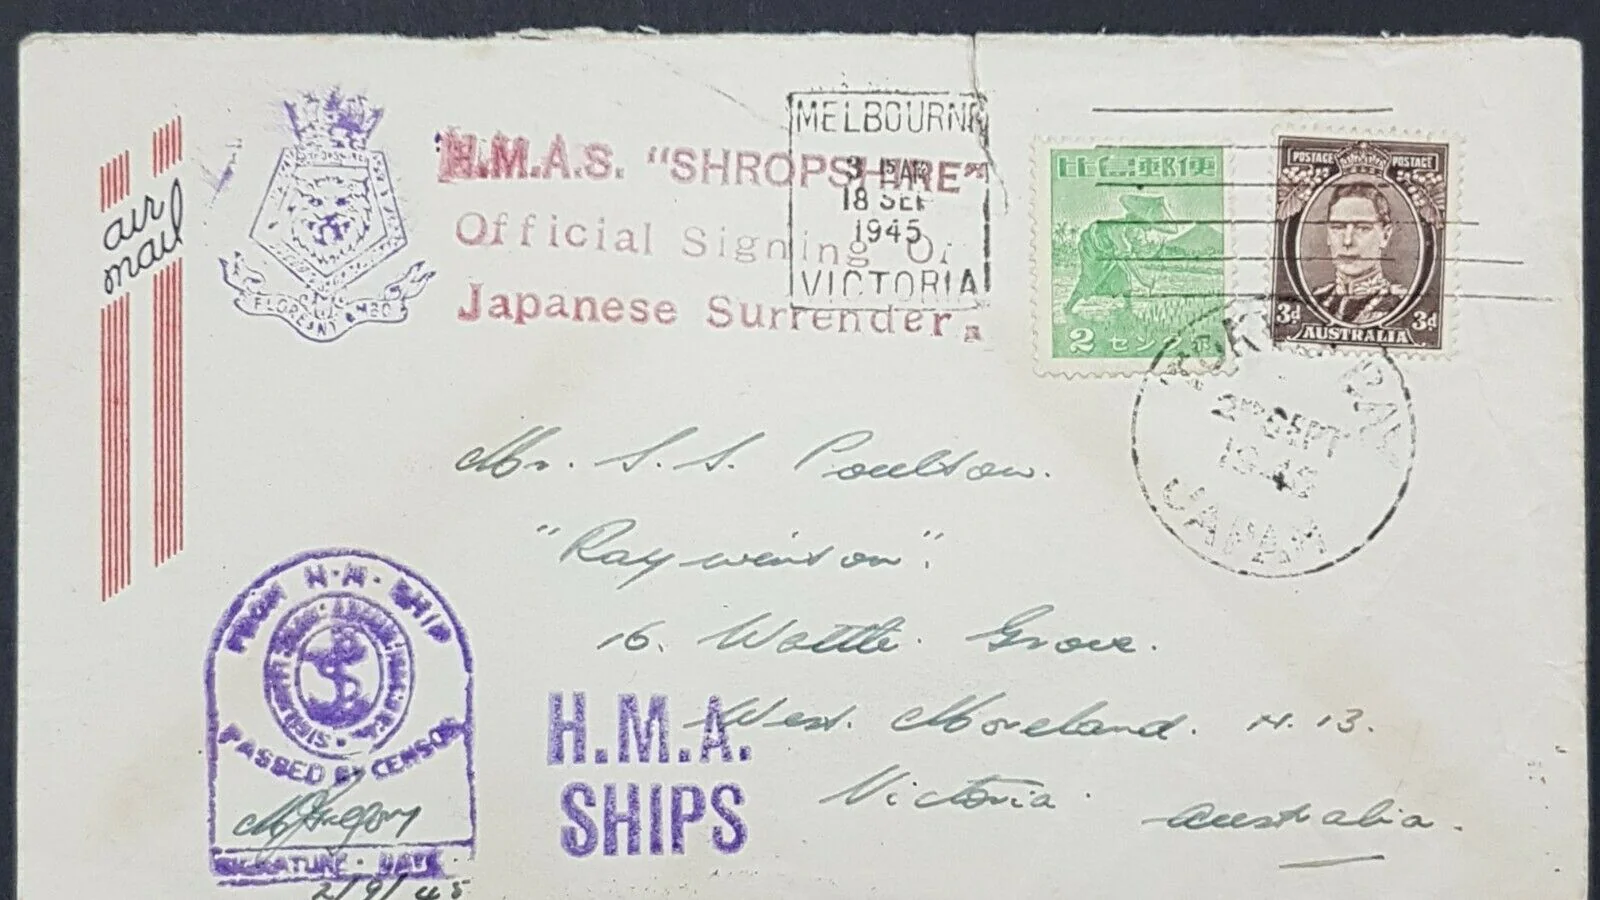 air
mail
SHROPSHIRE
H.M.A.S. "SHROPSHIRE"
Official Signing Of
Japanese Surrender.
MELBOURNE
3 PM
18 SEP
1945
VICTORIA
2 センタボ
POSTAGE POSTAGE
3d AUSTRALIA 3d
BAY
2ND SEPT
1945
JAPAN
Mr. S. S. Poulton.
"Raywinton".
16. Wattle. Grove.
West. Moreland. N. 13.
Victoria.
Australia.
FROM H·M·SHIP
PASSED BY CENSOR
SIGNATURE · DATE
2/9/45
H.M.A.
SHIPS